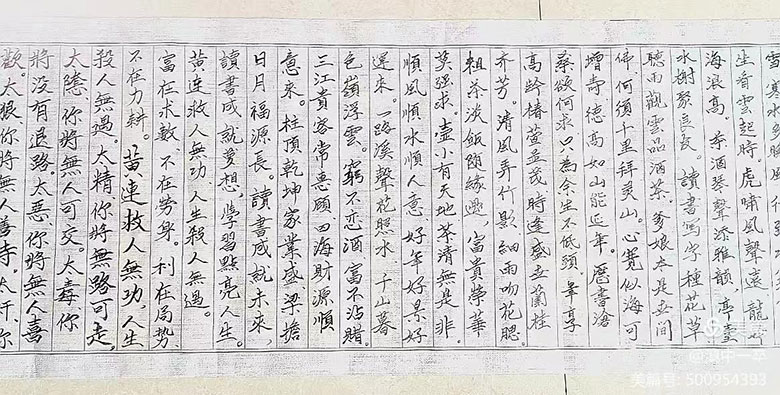 生看雲起時。虎嘯風聲遠，龍
海浪高。琴酒琴聲添雅韻，亭臺
水榭聚良友。讀書寫字種花草，
聽雨觀雲品酒茶。爹娘本是世間
佛，何須千里拜靈山。心寬似海可
增壽，德高如山能延年。歷書滄
桑欲何求，只為余生不低頭。年享
高齡椿萱並茂時逢盛世蘭桂
齊芳。清風弄竹影細雨吻花腮。
粗茶淡飯隨緣過，富貴榮華
莫強求。壺小有天地茶清無是非。
順風順水順人意，好年好景好
運來。一路溪聲花照水，千山暮
色嶺浮雲。窮不恋酒富不沾賭。
三江貴客常惠顧四海財源順
意來。柱頂乾坤家業盛，梁擔
日月福源長。讀書成就未來，
讀書成就夢想，學習點亮人生。
黄連救人無功，人生殺人無過。
富在求數，不在劳身。利在局势，
不在力耕。黄連救人無功，人生
殺人無過。太精你將無路可走，
太陰，你將無人可交。太毒你
將没有退路。太惡，你將無人喜
歡。太狠你將無人善待。太奸，你
@滇中一萃
美篇号: 500954393